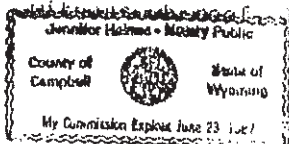 Jennifer Holmes • Notary Public
County of
Campbell
State of
Wyoming
My Commission Expires June 23